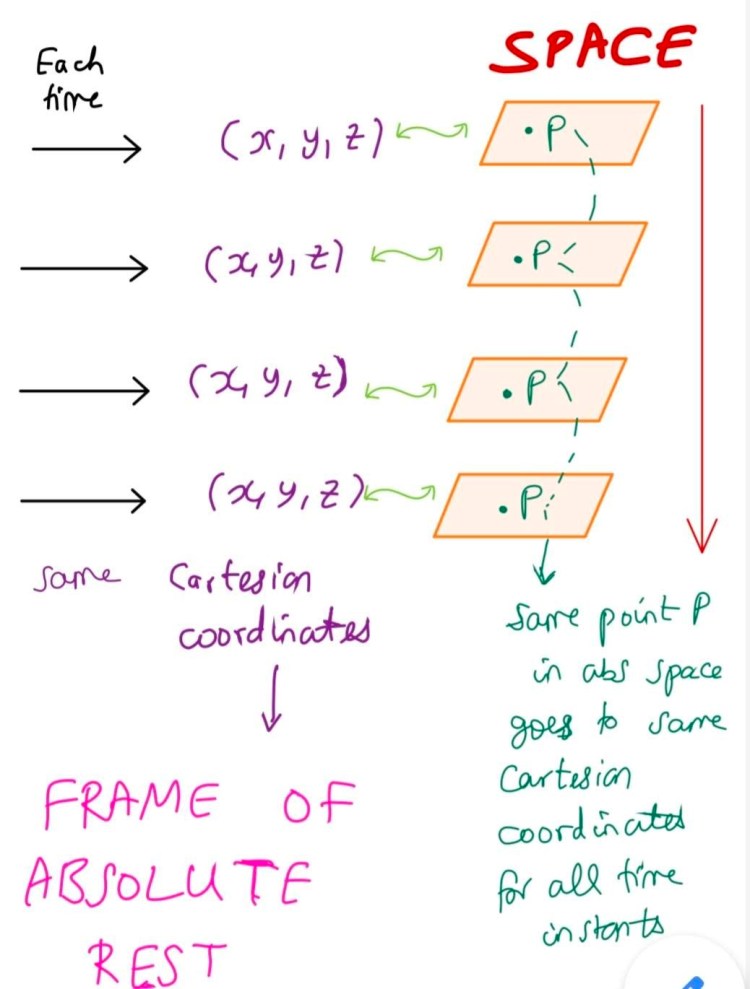 SPACE
Each
time
(x, y, z)
.P
(x, y, z)
.P
(x, y, z)
.P
(x, y, z)
.P
same Cartesian
coordinates
FRAME OF
ABSOLUTE
REST
Same point P
in abs space
goes to same
Cartesian
coordinates
for all time
instants